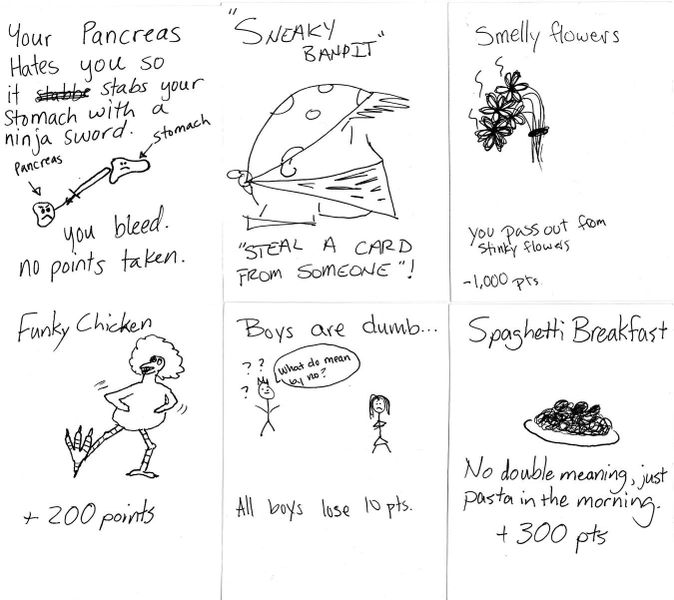 Your Pancreas
Hates you so
it stabbs stabs your
Stomach with a
ninja sword.
Pancreas
Stomach
you bleed.
no points taken.
"SNEAKY
BANDIT"
"STEAL A CARD
FROM SOMEONE"!
Smelly flowers
you pass out from
stinky flowers
-1,000 pts.
Funky Chicken
+ 200 points
Boys are dumb...
? ?
?
What do mean
by no?
All boys lose 10 pts.
Spaghetti Breakfast
No double meaning, just
pasta in the morning.
+ 300 pts